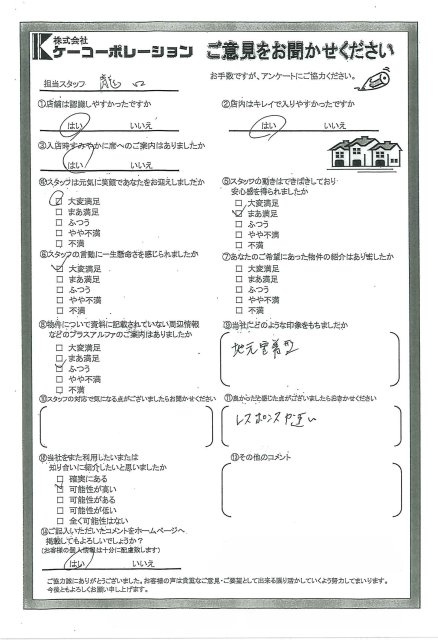 株式会社
ケーコーポレーション ご意見をお聞かせください
担当スタッフ
お手数ですが、アンケートにご協力ください。
①店舗は認識しやすかったですか
はい いいえ
②店内はキレイで入りやすかったですか
はい いいえ
③入店時すみやかに席へのご案内はありましたか
はい いいえ
④スタッフは元気に笑顔であなたをお迎えしましたか
□ 大変満足
□ まあ満足
□ ふつう
□ やや不満
□ 不満
⑤スタッフの動きはてきぱきしており
安心感を得られましたか
□ 大変満足
□ まあ満足
□ ふつう
□ やや不満
□ 不満
⑥スタッフの言動に一生懸命さを感じられましたか
□ 大変満足
□ まあ満足
□ ふつう
□ やや不満
□ 不満
⑦あなたのご希望にあった物件の紹介はありましたか
□ 大変満足
□ まあ満足
□ ふつう
□ やや不満
□ 不満
⑧物件について資料に記載されていない周辺情報
などのプラスアルファのご案内はありましたか
□ 大変満足
□ まあ満足
□ ふつう
□ やや不満
□ 不満
⑨当社にどのような印象をもちましたか
地元密着型
⑩スタッフの対応で気になる点がございましたらお聞かせください
⑪良かったと感じた点がございましたらお聞かせください
レスポンスや速い
⑫当社をまた利用したいまたは
知り合いに紹介したいと思いましたか
□ 確実にある
□ 可能性が高い
□ 可能性がある
□ 可能性が低い
□ 全く可能性はない
⑬その他のコメント
⑭ご記入いただいたコメントをホームページへ
掲載してもよろしいでしょうか？
(お客様の個人情報は十分に配慮致します)
はい いいえ
ご協力誠にありがとうございました。お客様の声は貴重なご意見・ご要望として出来る限り活かしていくよう努力してまいります。
今後ともよろしくお願い申し上げます。